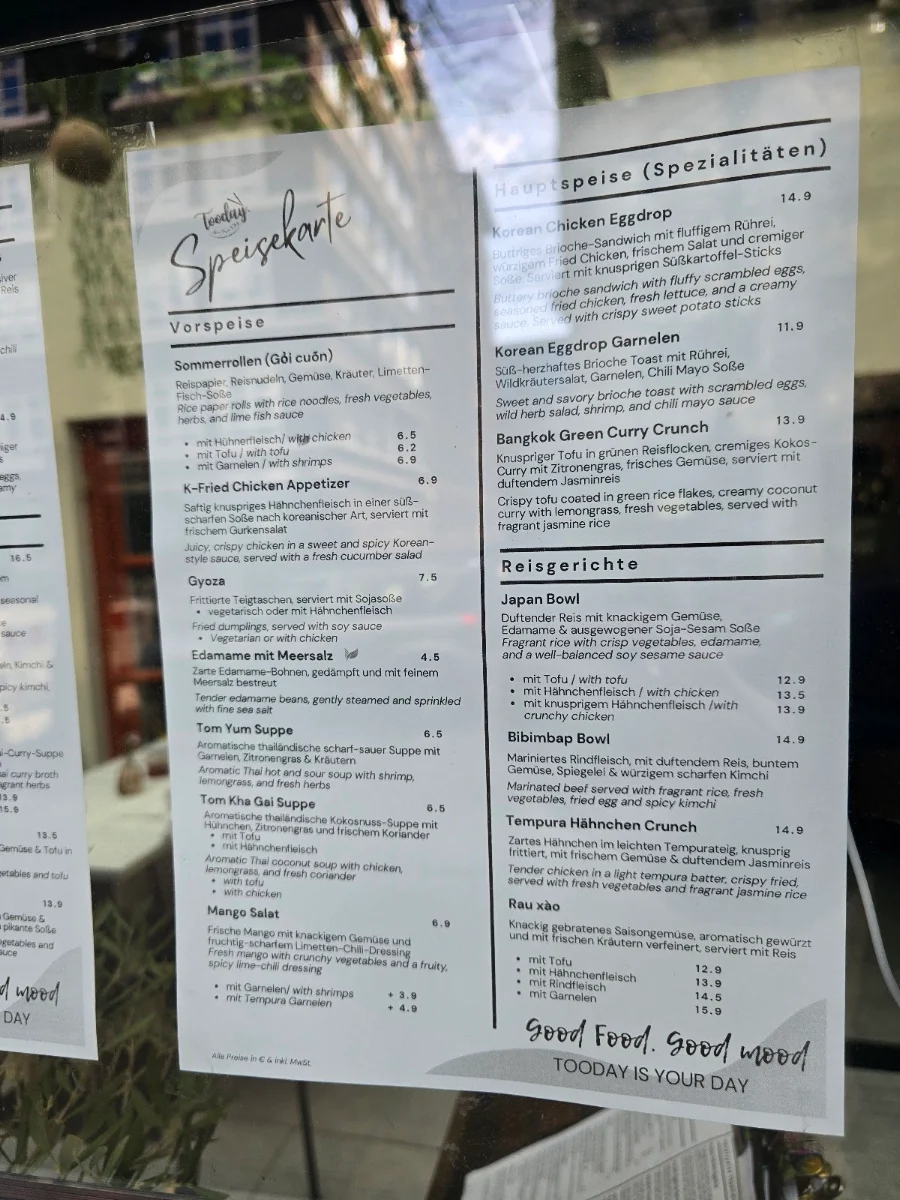 iver
Reis
chili
4.9
eggs,
16.5
seasonal
sauce
Kimchi &
picy kimchi,
.5
.5
i-Curry-Suppe
ai curry broth
agrant herbs
13.9
15.9
13.5
Gemüse & Tofu in
etables and tofu
13.9
Gemüse &
pikante Soße
getables and
auce
d mood
DAY
Tooday
Speisekarte
Vorspeise
Sommerrollen (Gỏi cuốn)
Reispapier, Reisnudeln, Gemüse, Kräuter, Limetten-
Fisch-Soße
Rice paper rolls with rice noodles, fresh vegetables,
herbs, and lime fish sauce
• mit Hühnerfleisch/ with chicken 6.5
• mit Tofu / with tofu 6.2
• mit Garnelen / with shrimps 6.9
K-Fried Chicken Appetizer 6.9
Saftig knuspriges Hähnchenfleisch in einer süß-
scharfen Soße nach koreanischer Art, serviert mit
frischem Gurkensalat
Juicy, crispy chicken in a sweet and spicy Korean-
style sauce, served with a fresh cucumber salad
Gyoza 7.5
Frittierte Teigtaschen, serviert mit Sojasoße
• vegetarisch oder mit Hähnchenfleisch
Fried dumplings, served with soy sauce
• Vegetarian or with chicken
Edamame mit Meersalz 4.5
Zarte Edamame-Bohnen, gedämpft und mit feinem
Meersalz bestreut
Tender edamame beans, gently steamed and sprinkled
with fine sea salt
Tom Yum Suppe 6.5
Aromatische thailändische scharf-sauer Suppe mit
Garnelen, Zitronengras & Kräutern
Aromatic Thai hot and sour soup with shrimp,
lemongrass, and fresh herbs
Tom Kha Gai Suppe 6.5
Aromatische thailändische Kokosnuss-Suppe mit
Hühnchen, Zitronengras und frischem Koriander
• mit Tofu
• mit Hähnchenfleisch
Aromatic Thai coconut soup with chicken,
lemongrass, and fresh coriander
• with tofu
• with chicken
Mango Salat 6.9
Frische Mango mit knackigem Gemüse und
fruchtig-scharfem Limetten-Chili-Dressing
Fresh mango with crunchy vegetables and a fruity,
spicy lime-chili dressing
• mit Garnelen/ with shrimps + 3.9
• mit Tempura Garnelen + 4.9
Alle Preise in € & inkl. MwSt.
Hauptspeise (Spezialitäten)
Korean Chicken Eggdrop 14.9
Buttriges Brioche-Sandwich mit fluffigem Rührei,
würzigem Fried Chicken, frischem Salat und cremiger
Soße. Serviert mit knusprigen Süßkartoffel-Sticks
Buttery brioche sandwich with fluffy scrambled eggs,
seasoned fried chicken, fresh lettuce, and a creamy
sauce. Served with crispy sweet potato sticks
Korean Eggdrop Garnelen 11.9
Süß-herzhaftes Brioche Toast mit Rührei,
Wildkräutersalat, Garnelen, Chili Mayo Soße
Sweet and savory brioche toast with scrambled eggs,
wild herb salad, shrimp, and chili mayo sauce
Bangkok Green Curry Crunch 13.9
Knuspriger Tofu in grünen Reisflocken, cremiges Kokos-
Curry mit Zitronengras, frisches Gemüse, serviert mit
duftendem Jasminreis
Crispy tofu coated in green rice flakes, creamy coconut
curry with lemongrass, fresh vegetables, served with
fragrant jasmine rice
Reisgerichte
Japan Bowl
Duftender Reis mit knackigem Gemüse,
Edamame & ausgewogener Soja-Sesam Soße
Fragrant rice with crisp vegetables, edamame,
and a well-balanced soy sesame sauce
• mit Tofu / with tofu 12.9
• mit Hähnchenfleisch / with chicken 13.5
• mit knusprigem Hähnchenfleisch /with 13.9
crunchy chicken
Bibimbap Bowl 14.9
Mariniertes Rindfleisch, mit duftendem Reis, buntem
Gemüse, Spiegelei & würzigem scharfen Kimchi
Marinated beef served with fragrant rice, fresh
vegetables, fried egg and spicy kimchi
Tempura Hähnchen Crunch 14.9
Zartes Hähnchen im leichten Tempurateig, knusprig
frittiert, mit frischem Gemüse & duftendem Jasminreis
Tender chicken in a light tempura batter, crispy fried,
served with fresh vegetables and fragrant jasmine rice
Rau xào
Knackig gebratenes Saisongemüse, aromatisch gewürzt
und mit frischen Kräutern verfeinert, serviert mit Reis
• mit Tofu 12.9
• mit Hähnchenfleisch 13.9
• mit Rindfleisch 14.5
• mit Garnelen 15.9
Good Food. Good mood
TOODAY IS YOUR DAY